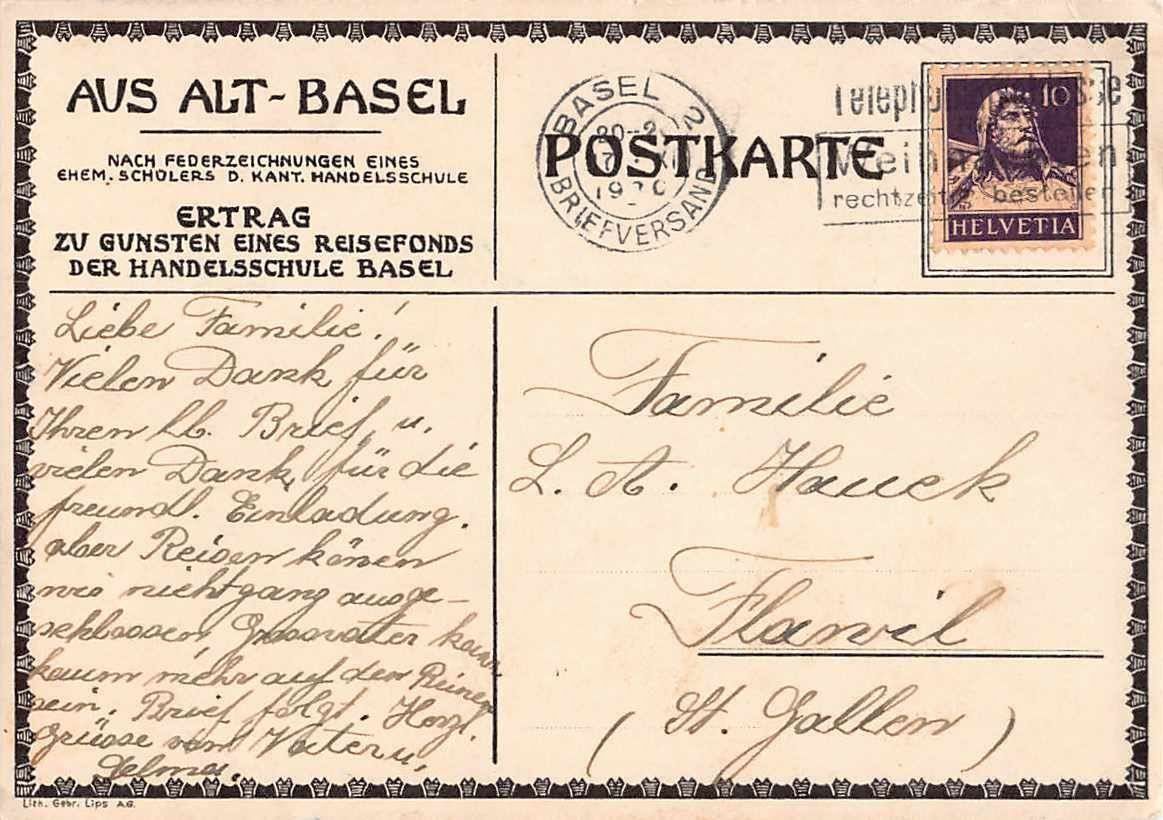 AUS ALT-BASEL
NACH FEDERZEICHNUNGEN EINES
EHEM. SCHÜLERS D. KANT. HANDELSSCHULE
ERTRAG
ZU GUNSTEN EINES REISEFONDS
DER HANDELSSCHULE BASEL
POSTKARTE
BASEL 2
BRIEFVERSAND
Weihnachten
rechtzeitig bestellen
10
HELVETIA
Liebe Familie!
Vielen Dank für
Ihren lb. Brief, u.
vielen Dank für die
freundl. Einladung.
aber Reisen könen
wir nicht ganz ausge-
schlossen, Grossvater kann
kaum mehr auf den Beinen
sein. Brief folgt. Herzl.
Grüsse vom Vater u.
Selma.
Familie
L. A. Hauck
Flawil
(St. Gallen)
Lith. Gebr. Lips A.G.